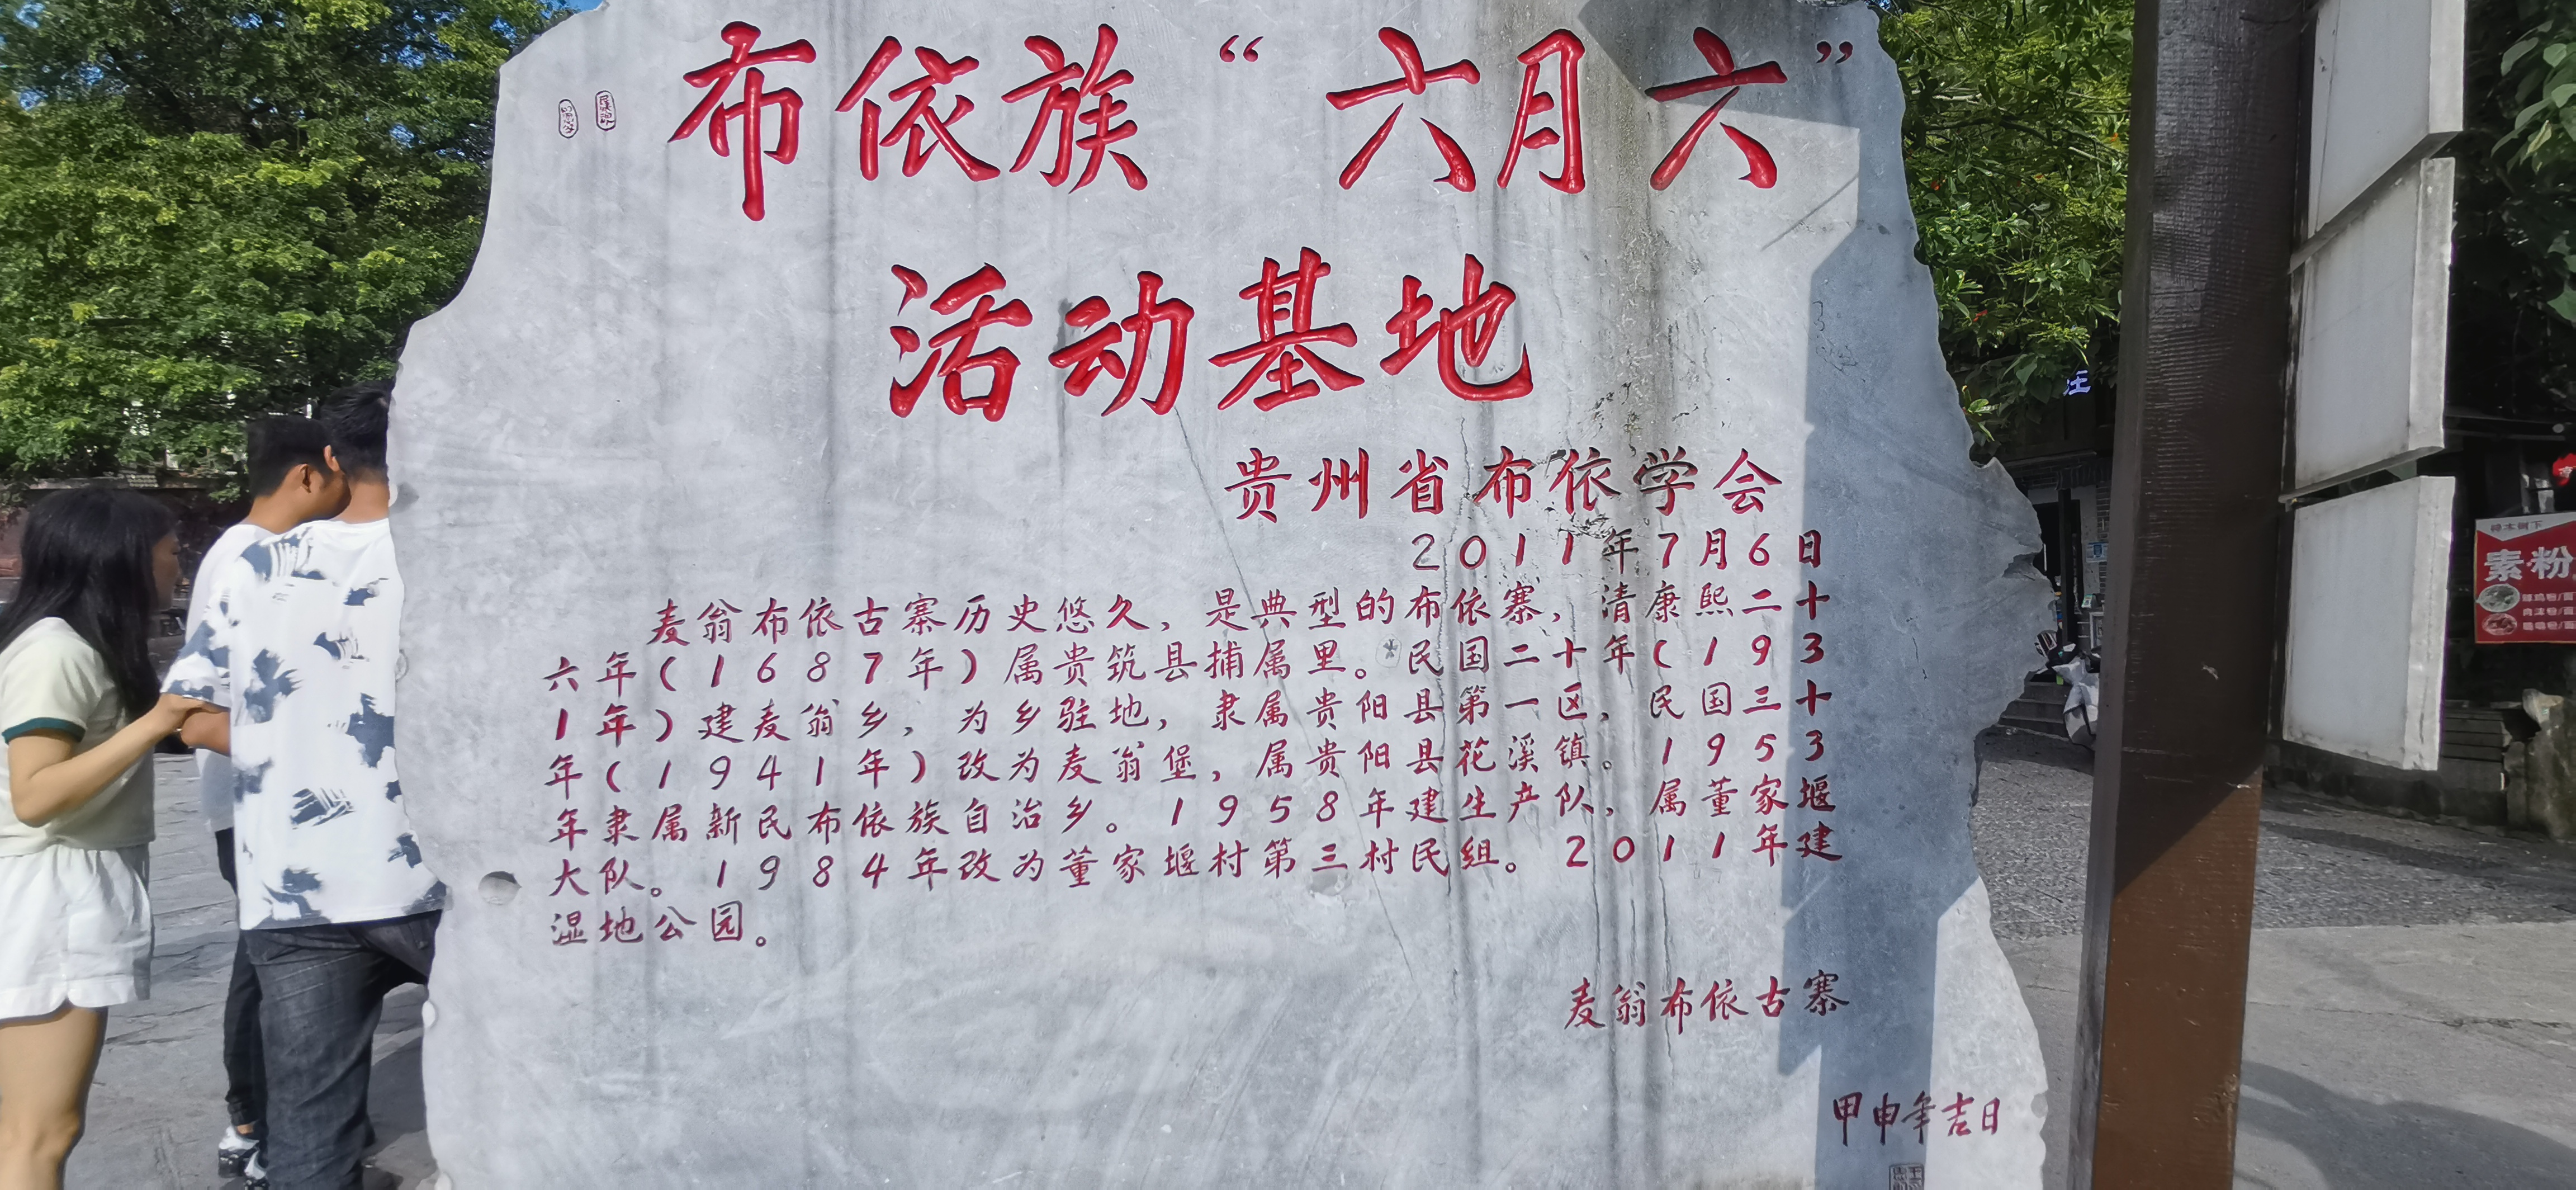 布依族“六月六”
活动基地
贵州省布依学会
2011年7月6日
麦翁布依古寨历史悠久，是典型的布依寨，清康熙二十
六年（1687年）属贵筑县捕属里。民国二十年（193
1年）建麦翁乡，为乡驻地，隶属贵阳县第一区，民国三十
年（1941年）改为麦翁堡，属贵阳县花溪镇。1953
年隶属新民布依族自治乡。1958年建生产队，属董家堰
大队。1984年改为董家堰村第三村民组。2011年建
湿地公园。
麦翁布依古寨
甲申年吉日
素·粉